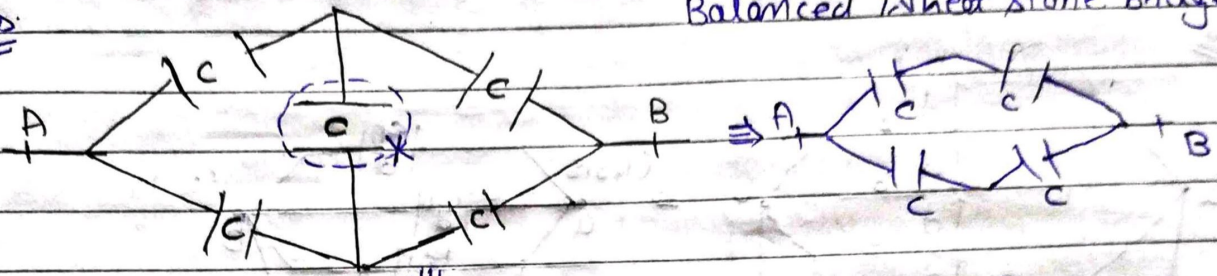 Balanced Wheat stone Bridge
C
C
A
C
B
⇒ A
C
C
B
C
C
C
C